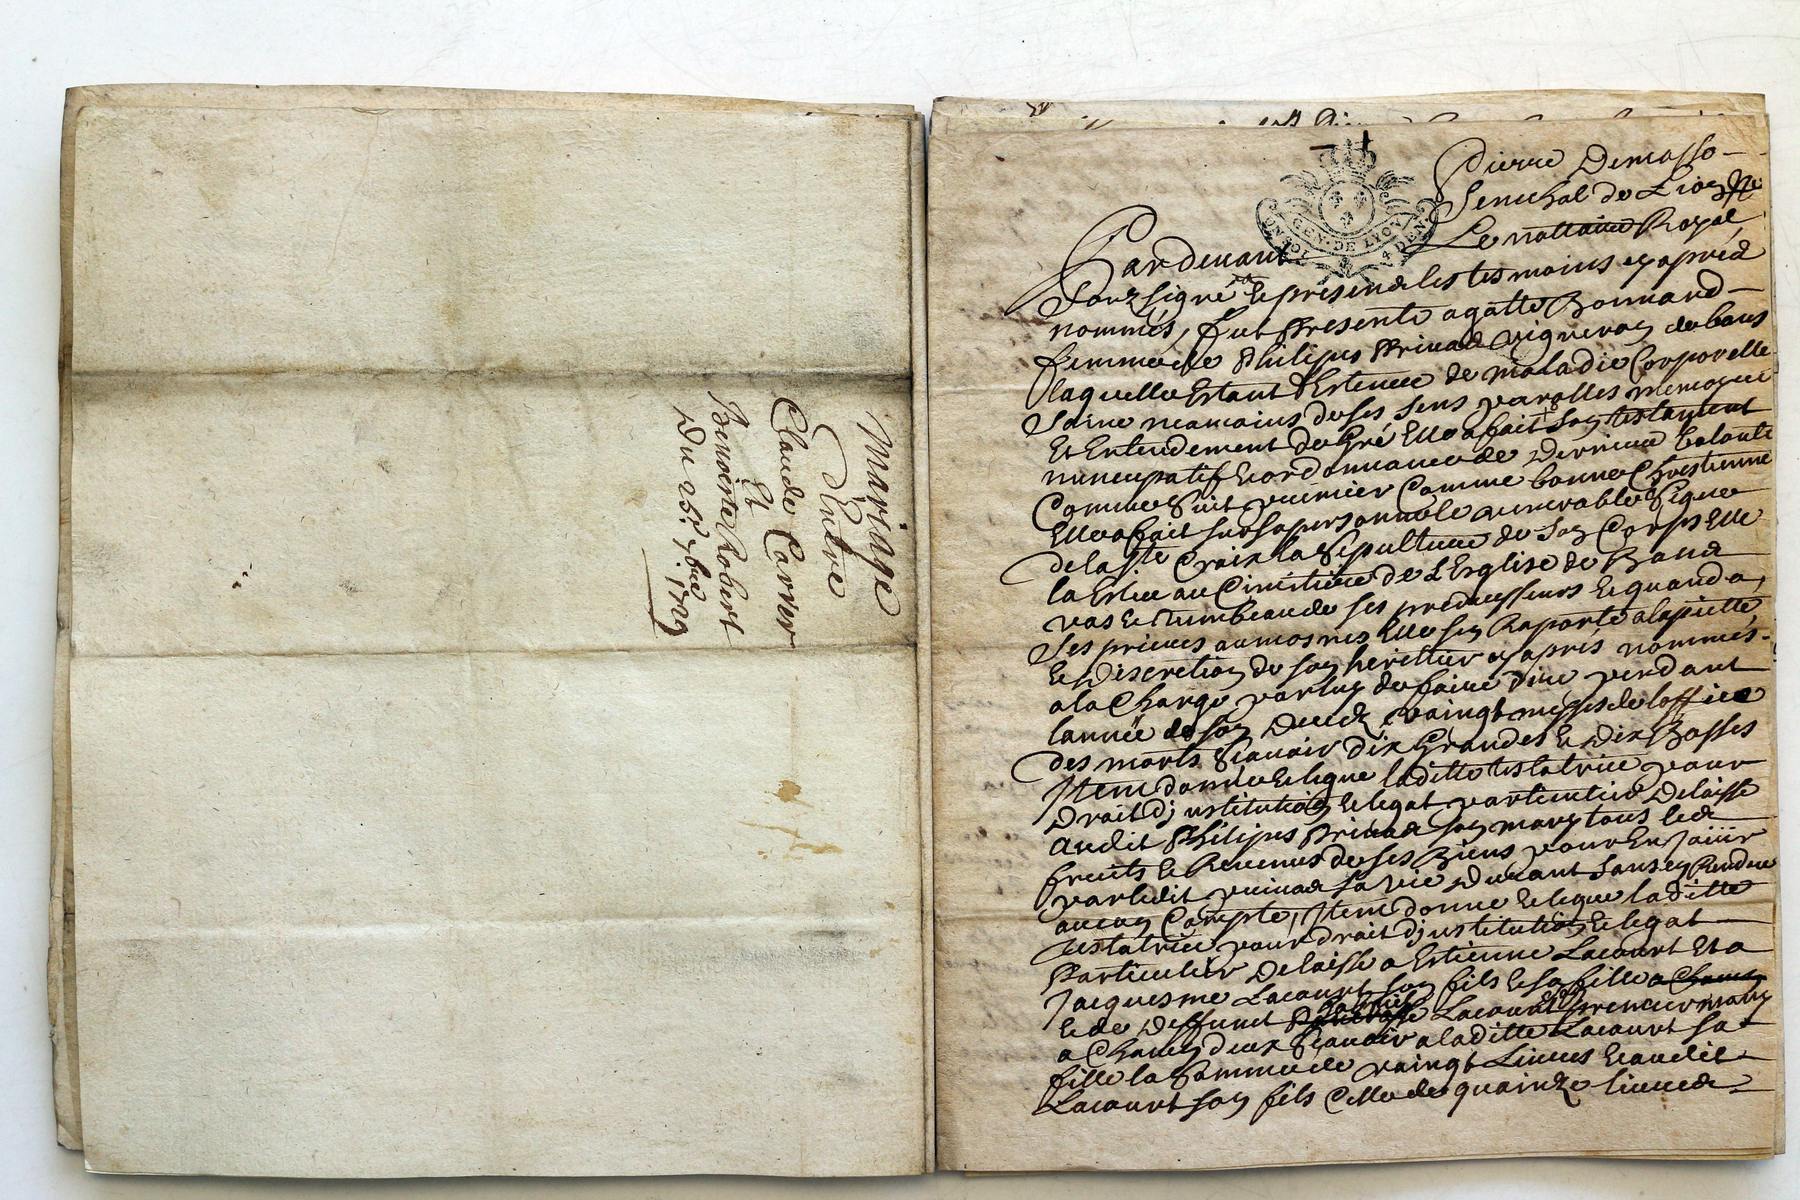 Mariage
Entre
Claude Carrier
Et
Benoiste Robert
Du 25e 7bre 1729
GEN. DE LYON
Pierre Demasso
Senechal de Lion
Pardevant Le nottaire Royal
Souzsigné Et presend les tesmoins cy apréd
nommés, fut presente agatte Bonnard
femme de Philipes Privad vigneron de
laquelle Estant détenue de maladie Corporelle
Saine neaumoins de ses sens parolles memoyre
Et Entendement de Gré Elle a fait son testament
nuncupatif Et ordonnance de Derniere Volonté
Comme suit premier Comme bonne Chrestienne
Elle a fait sur sa personne le venerable signe
de la Ste Croix la sepulture de son Corps Elle
la Eslue au Cimitiere de L'Esglise de
vas Et tumbeau de ses predecesseurs Et quand a
Ses prieres aumosnes Elle sen Raporte a la piette
Et Discretion de son herittier cy aprés nommés
a la Charge par luy de faire dire pendant
lannée de son Deced vaingt messes de loffice
des morts scavoir dix Grandes Et Dix Basses
Item donne Et legue laditte testatrice pour
Droit dinstitution Et legat particulier Delaisse
audit Philipes Privad son mary tous led
fruits Et Revenus de ses Biens pour En Jouir
par ledit privad sa vie Durant sans en Rendre
aucun Compte, Item donne Et legue laditte
testatrice pour droit dinstitution Et legat
Particulier Delaisse a Estienne Lacourt Et a
Jacquesme Lacourt son fils Et sa fille
Et de Deffunct Lacourt son premier mary
a Chacun deux scavoir a laditte Lacourt sa
fille la somme de vaingt Livres Et audit
Lacourt son fils Celle de quainze livred